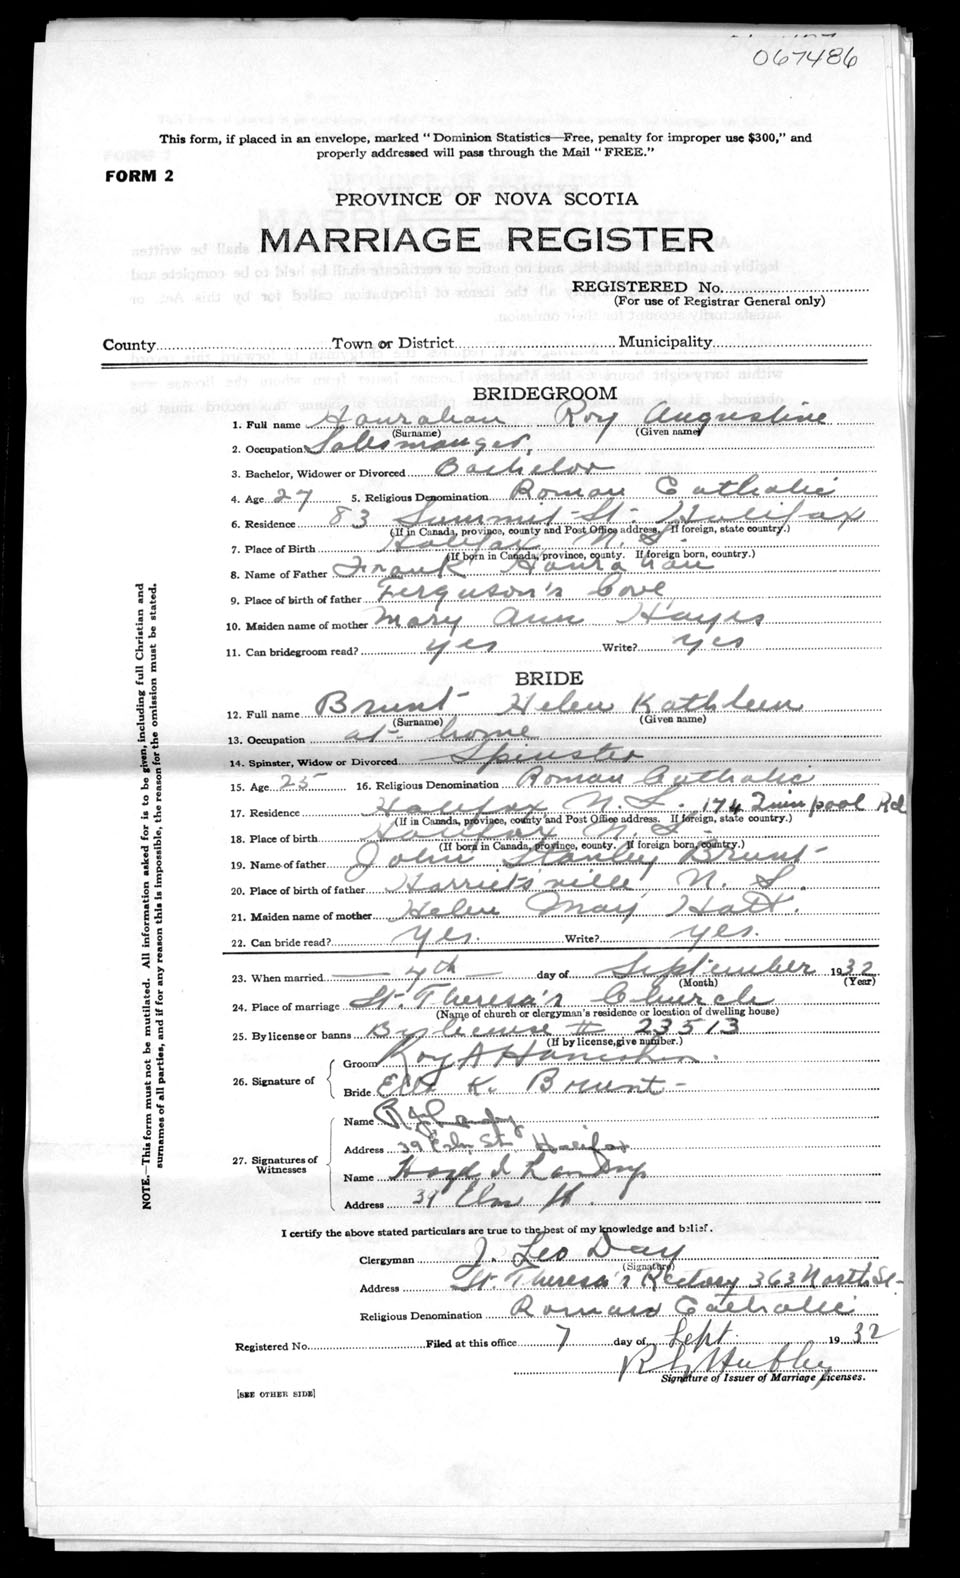 067486
This form, if placed in an envelope, marked "Dominion Statistics—Free, penalty for improper use $300," and
properly addressed will pass through the Mail "FREE."
FORM 2
PROVINCE OF NOVA SCOTIA
MARRIAGE REGISTER
REGISTERED No.
(For use of Registrar General only)
County Town or District Municipality
BRIDEGROOM
1. Full name Hanrahan Roy Augustine
(Surname) (Given name)
2. Occupation Salesmanger.
3. Bachelor, Widower or Divorced Bachelor
4. Age 27 5. Religious Denomination Roman Catholic
6. Residence 83 Summit St. Halifax
(If in Canada, province, county and Post Office address. If foreign, state country.)
7. Place of Birth Halifax N. S.
(If born in Canada, province, county. If foreign born, country.)
8. Name of Father Frank Hanrahan
9. Place of birth of father Ferguson's Cove
10. Maiden name of mother Mary Ann Hayes
11. Can bridegroom read? yes Write? yes
BRIDE
12. Full name Brunt Helen Kathleen
(Surname) (Given name)
13. Occupation at home
14. Spinster, Widow or Divorced Spinster
15. Age 25 16. Religious Denomination Roman Catholic
17. Residence Halifax N. S. 174 Quinpool Rd
(If in Canada, province, county and Post Office address. If foreign, state country.)
18. Place of birth Halifax N. S.
(If born in Canada, province, county. If foreign born, country.)
19. Name of father John Stanley Brunt
20. Place of birth of father Harrietsville, N. S.
21. Maiden name of mother Helen May Hatt.
22. Can bride read? yes. Write? yes.
23. When married 4th day of September 1932
(Month) (Year)
24. Place of marriage St. Theresa's Church
(Name of church or clergyman's residence or location of dwelling house)
25. By license or banns By license # 23513
(If by license, give number.)
26. Signature of
Groom Roy A Hanrahan.
Bride K. Brunt
27. Signatures of
Witnesses
Name
Address 39 Elm St Halifax
Name Landry
Address 39 Elm St.
I certify the above stated particulars are true to the best of my knowledge and belief.
Clergyman J. Leo Day
(Signature)
Address St. Theresa's Rectory 363 North St.
Religious Denomination Roman Catholic
Registered No. Filed at this office 7 day of Sept. 1932
Hubley
Signature of Issuer of Marriage Licenses.
[SEE OTHER SIDE]
NOTE.—This form must not be mutilated. All information asked for is to be given, including full Christian and
surnames of all parties, and if for any reason this is impossible, the reason for the omission must be stated.